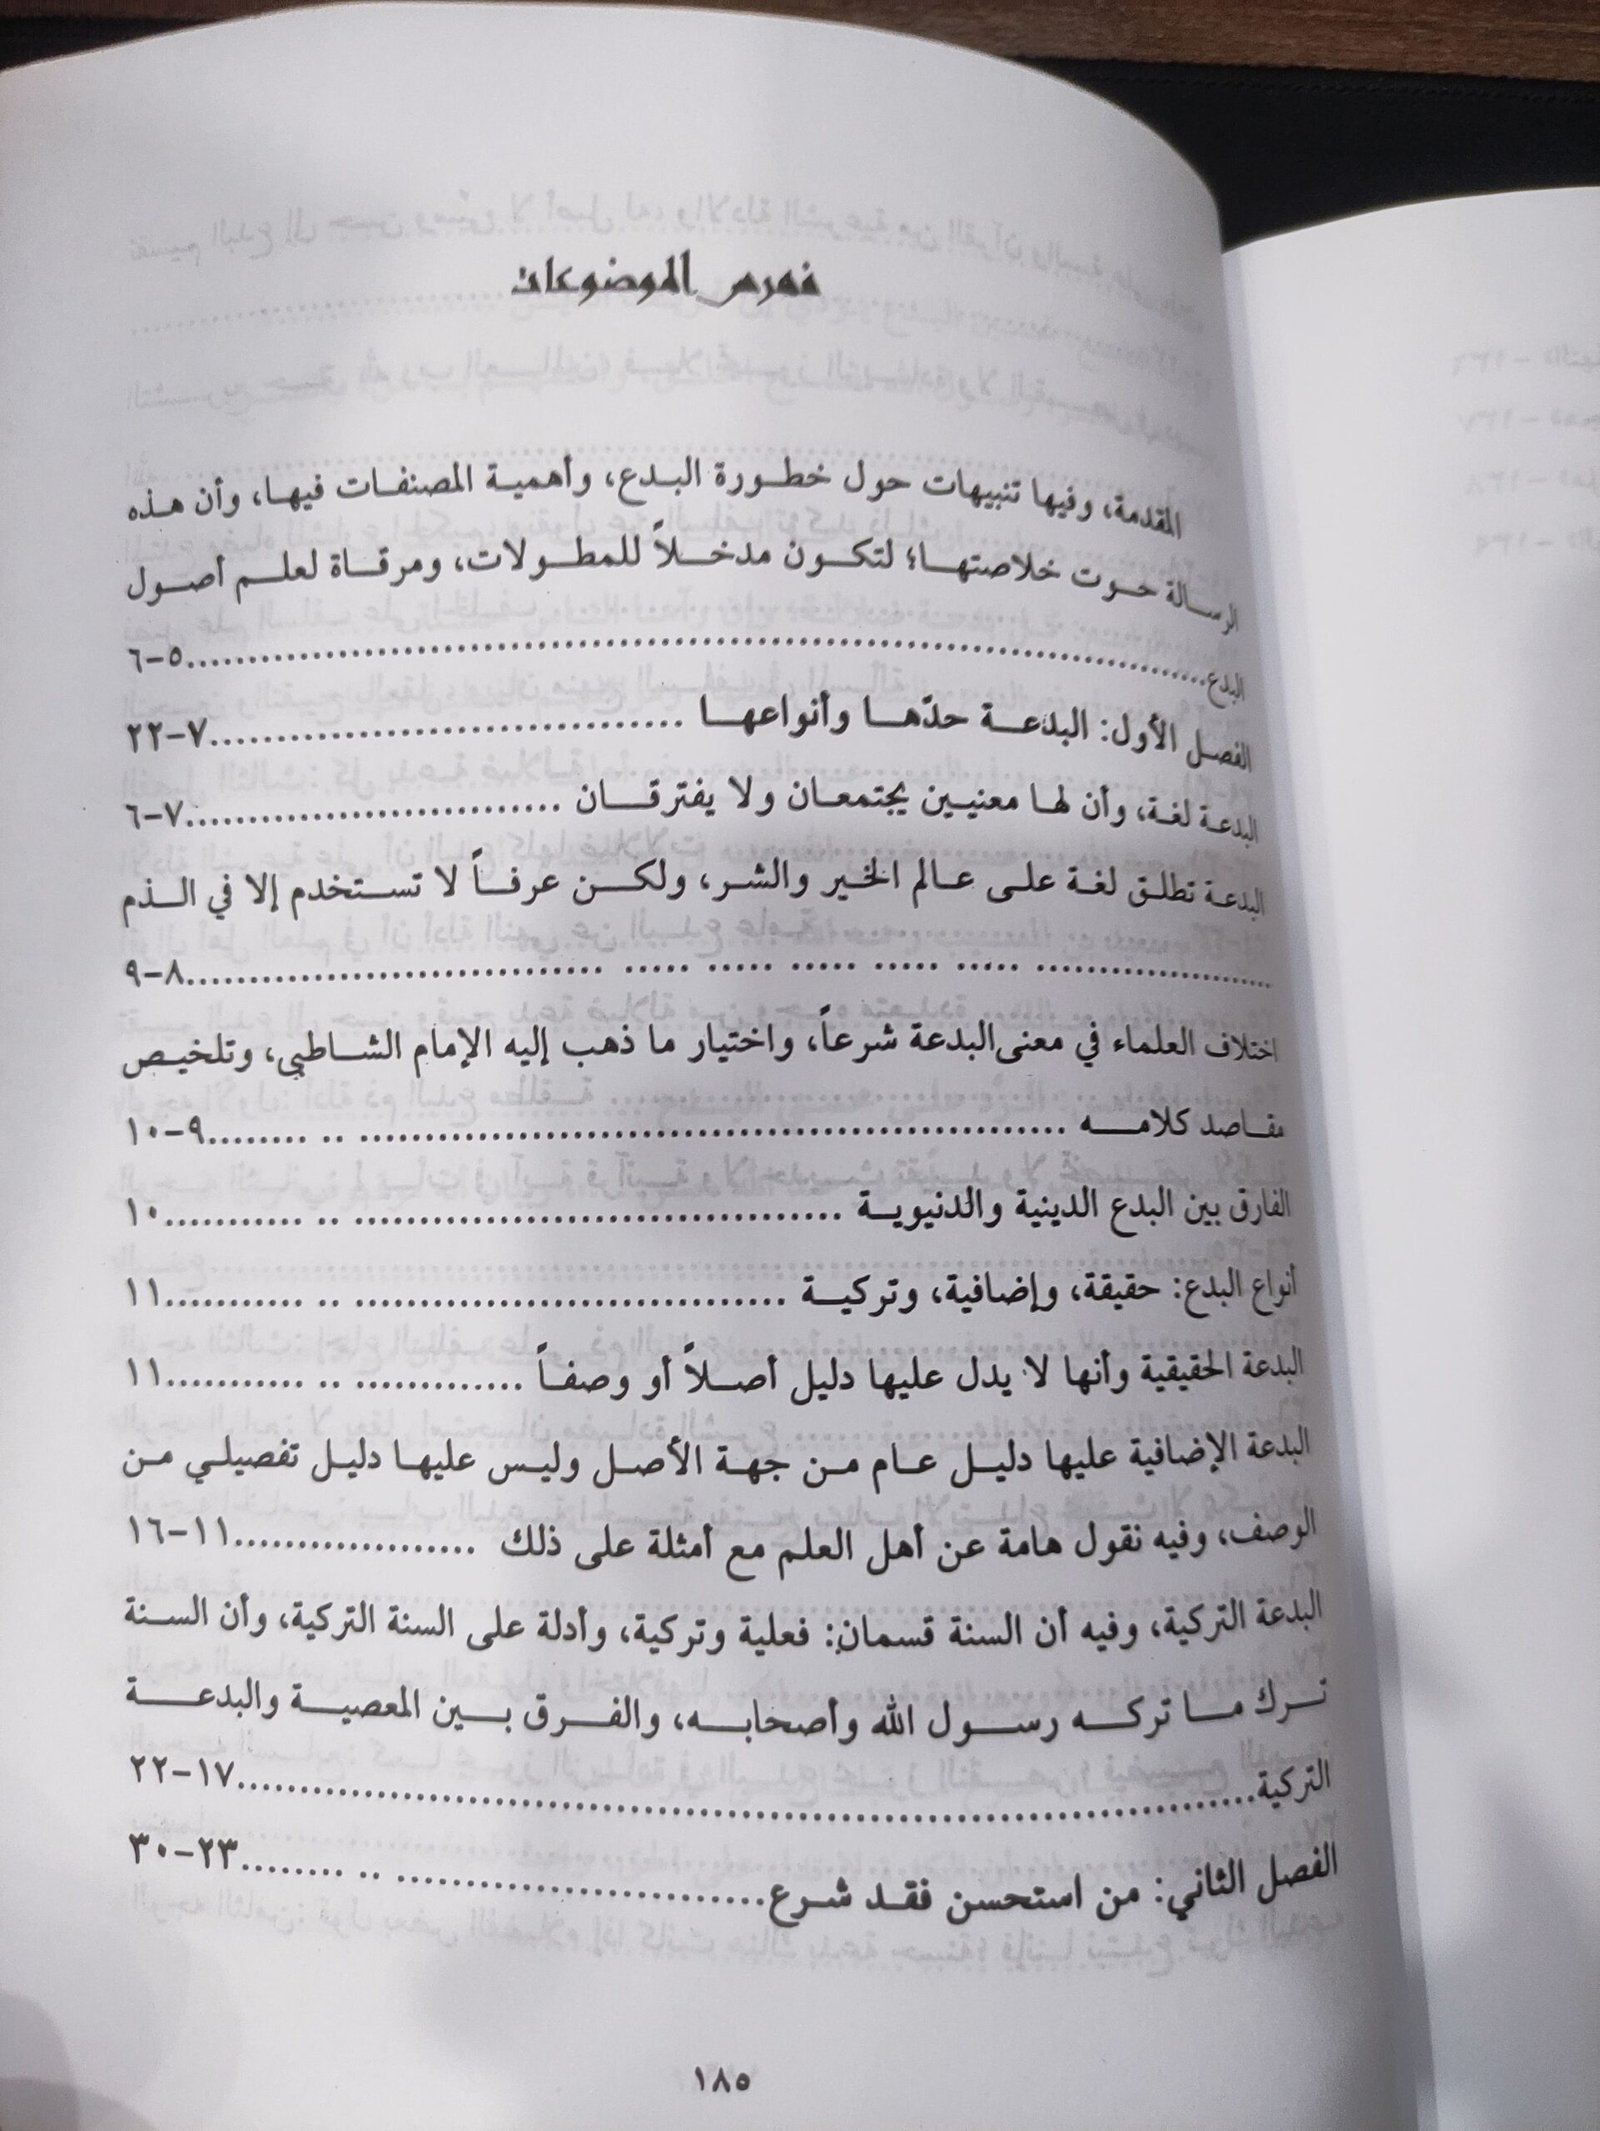 فهرس الموضوعات
المقدمة، وفيها تنبيهات حول خطورة البدع، وأهمية المصنفات فيها، وأن هذه
الرسالة حوت خلاصتها؛ لتكون مدخلاً للمطولات، ومرقاة لعلم أصول
البدع..........................................................................٥-٦
الفصل الأول: البدعة حدّها وأنواعها ....................................٧-٢٢
البدعة لغة، وأن لها معنيين يجتمعان ولا يفترقان .............................٧-٦
البدعة تطلق لغة على عالم الخير والشر، ولكن عرفاً لا تستخدم إلا في الذم
.................... ..... ..... ..... ..... ..... ................................٨-٩
اختلاف العلماء في معنى البدعة شرعاً، واختيار ما ذهب إليه الإمام الشاطبي، وتلخيص
مقاصد كلامه ...................................................... .. ........٩-١٠
الفارق بين البدع الدينية والدنيوية ..................................... .. ...........١٠
أنواع البدع: حقيقة، وإضافية، وتركية ................................. .. ...........١١
البدعة الحقيقية وأنها لا يدل عليها دليل أصلاً أو وصفاً ............. .. ...........١١
البدعة الإضافية عليها دليل عام من جهة الأصل وليس عليها دليل تفصيلي من
الوصف، وفيه نقول هامة عن أهل العلم مع أمثلة على ذلك ...................١١-١٦
البدعة التركية، وفيه أن السنة قسمان: فعلية وتركية، وأدلة على السنة التركية، وأن السنة
ترك ما تركه رسول الله وأصحابه، والفرق بين المعصية والبدعة
التركية..........................................................................١٧-٢٢
الفصل الثاني: من استحسن فقد شرع.......................... .. ........٢٣-٣٠
١٨٥